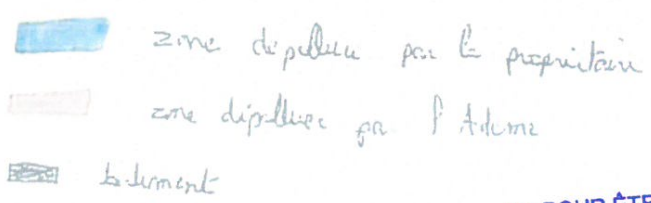 zone dépolluée par le propriétaire
zone dépolluée par l'Ademe
batiment
POUR ÊTRE